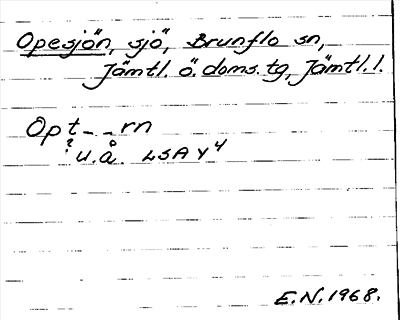 Opesjön, sjö, Brunflo sn,
Jämtl. ö. doms. tg, Jämtl. l.
Opt__rn
? u.å. LSA Y4
E.N. 1968.